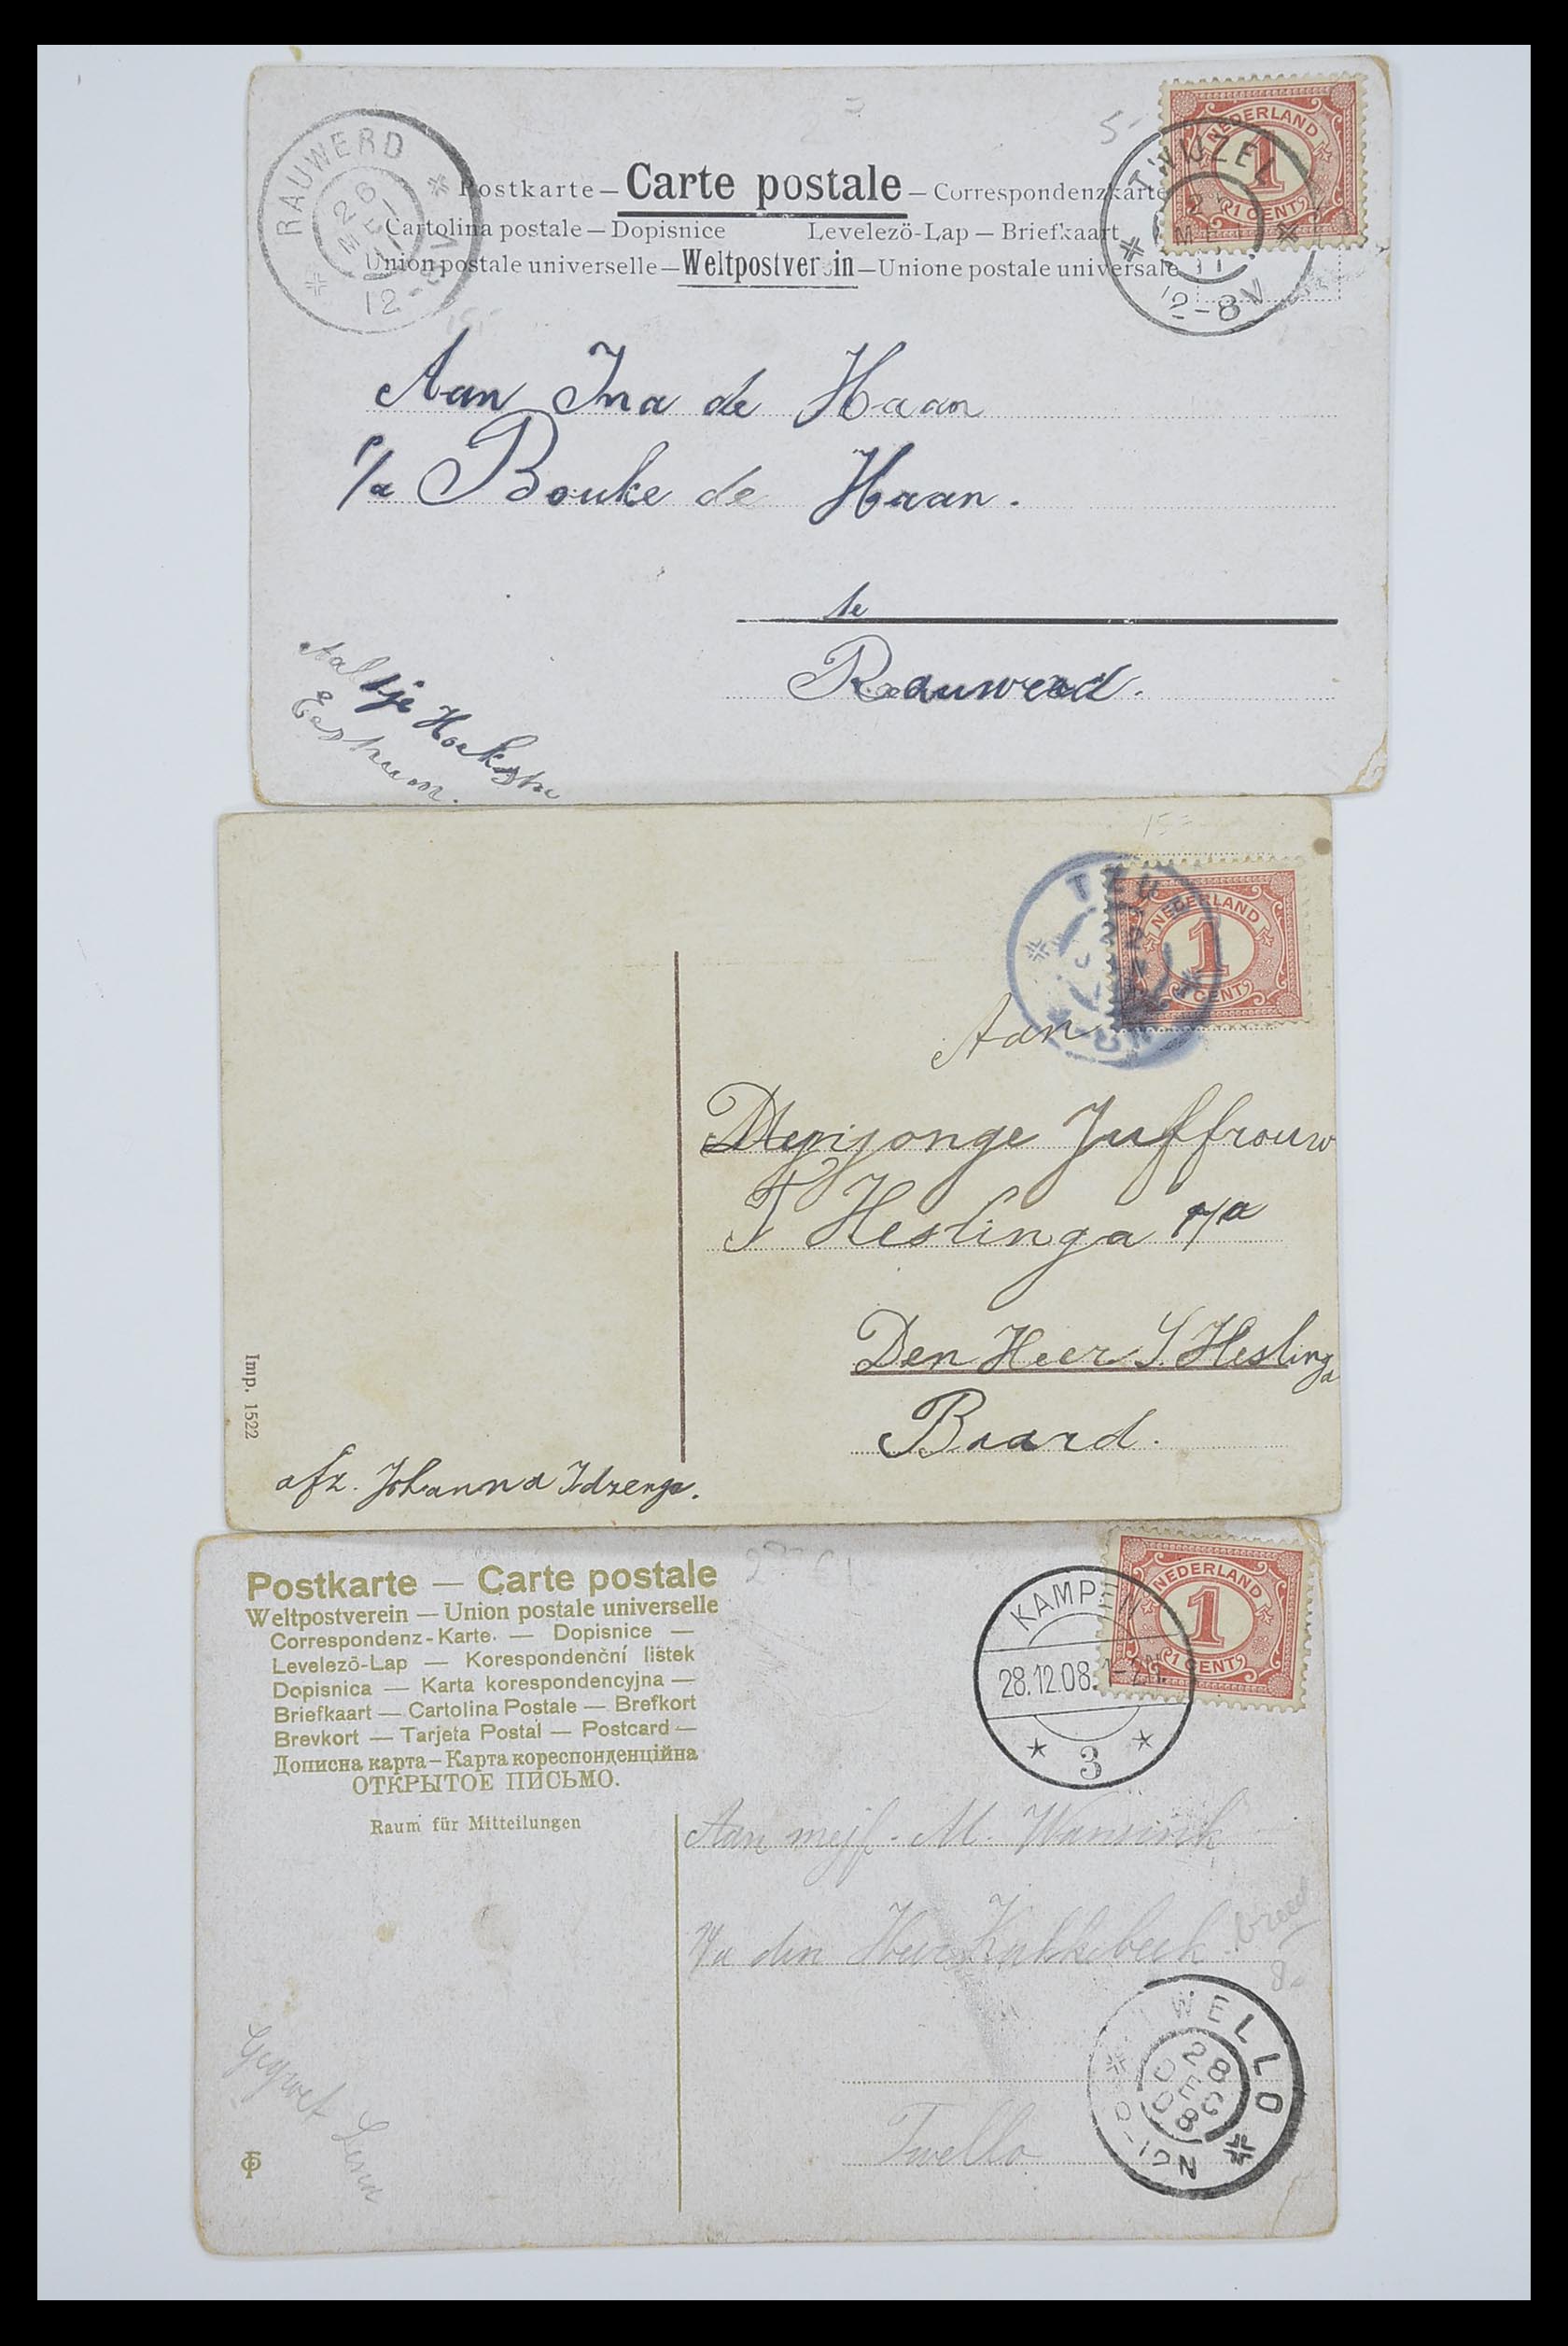 RAUWERD
26
MEI
11
12-8V
Postkarte — Carte postale — Correspondenzkarte
Cartolina postale — Dopisnice Levelezö-Lap — Briefkaart
Union postale universelle — Weltpostverein — Unione postale universale
NEDERLAND
1
1 CENT
TWIJZEL
2
MEI
11
12-8V
Aan Ina de Haan
p/a Bouke de Haan.
te
Rauwerd.
Aaltje Hoekstra
Eestrum.
NEDERLAND
1
1 CENT
TZU
Aan
Mejonge Juffrouw
T Heslinga p/a
Den Heer S. Heslinga
Baard.
Imp. 1522
afz. Johanna Idzenga.
Postkarte — Carte postale
Weltpostverein — Union postale universelle
Correspondenz-Karte. — Dopisnice —
Levelezö-Lap — Korespondenční lístek
Dopisnica — Karta korespondencyjna —
Briefkaart — Cartolina Postale — Brefkort
Brevkort — Tarjeta Postal — Postcard —
Дописна карта — Карта кореспонденційна
ОТКРЫТОЕ ПИСЬМО.
Raum für Mitteilungen
NEDERLAND
1
1 CENT
KAMPEN
28.12.08.
3
Aan mejf. M. Wansink
p/a den Heer
Twello
TWELLO
28
DEC
08